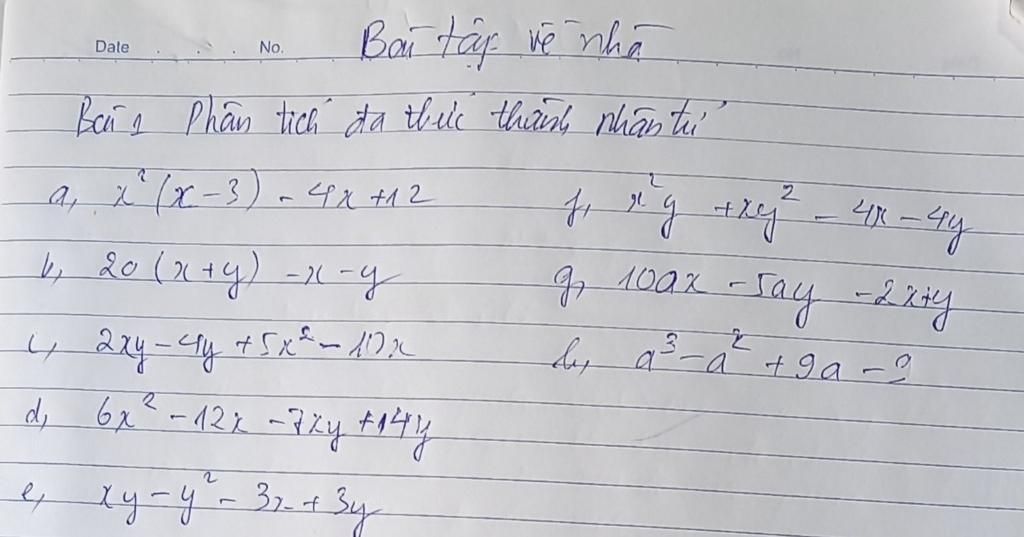 Date No. Bài tập về nhà
Bài 1 Phân tích đa thức thành nhân tử
a, x²(x-3) - 4x + 12
b, 20(x+y) - x - y
c, 2xy - 4y + 5x² - 10x
d, 6x² - 12x - 7xy + 14y
e, xy - y² - 3x + 3y
f, x²y + xy² - 4x - 4y
g, 10ax - 5ay - 2x+y
h, a³ - a² + 9a - 9